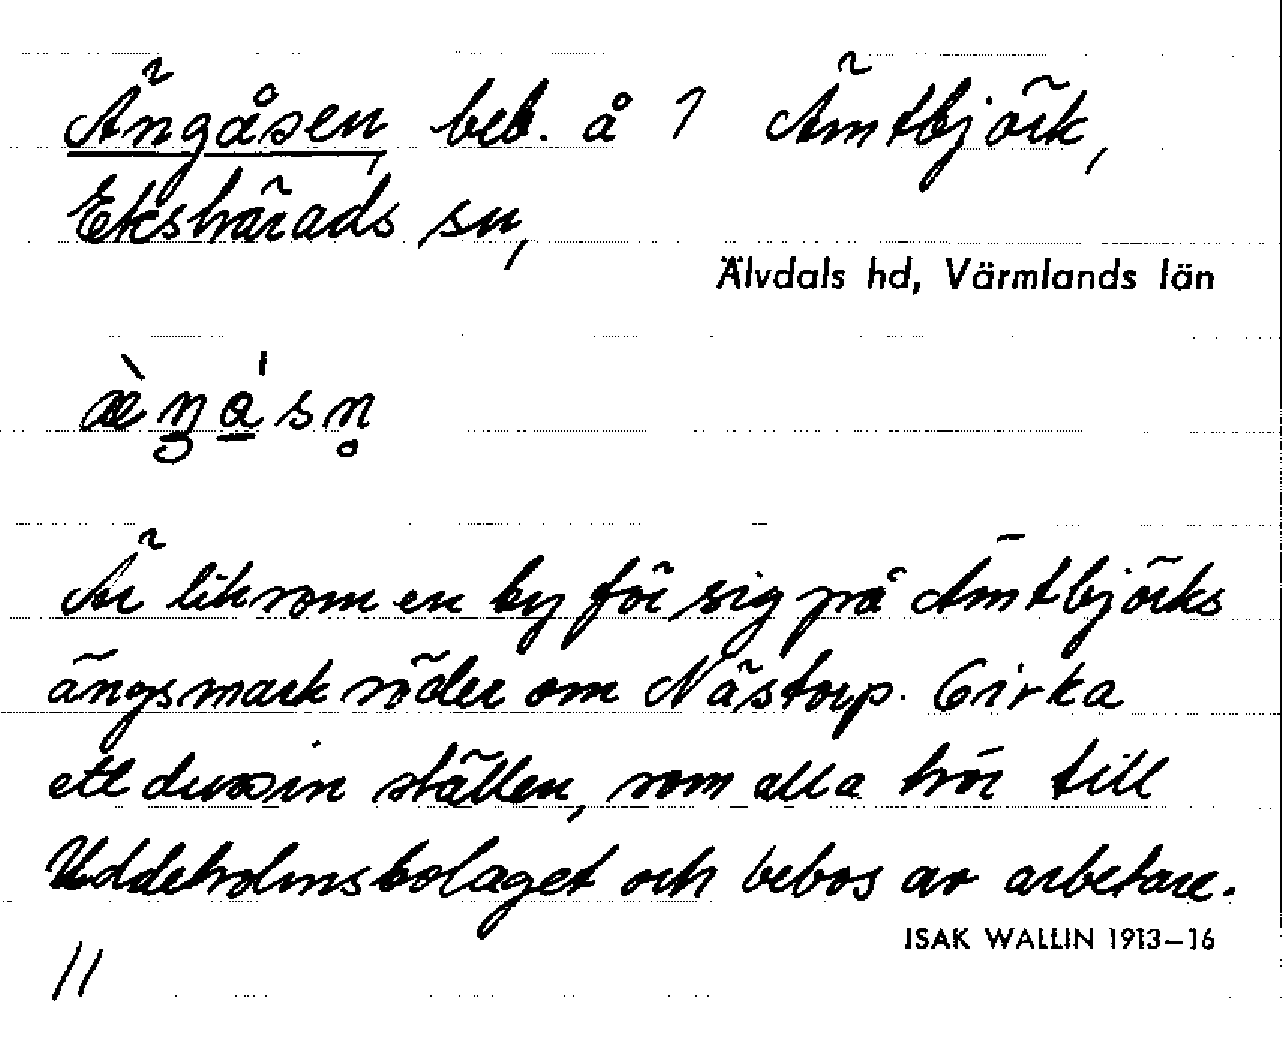 Ängåsen, beb. å 1 Ämtbjörk,
Ekshärads sn,
Älvdals hd, Värmlands län
æ̀ŋa̲̍sn̥
Är liksom en by för sig på Ämtbjörks
ängsmark söder om Nästorp. Cirka
ett dussin ställen, som alla hör till
Uddeholmsbolaget och bebos av arbetare.
ISAK WALLIN 1913–16
//